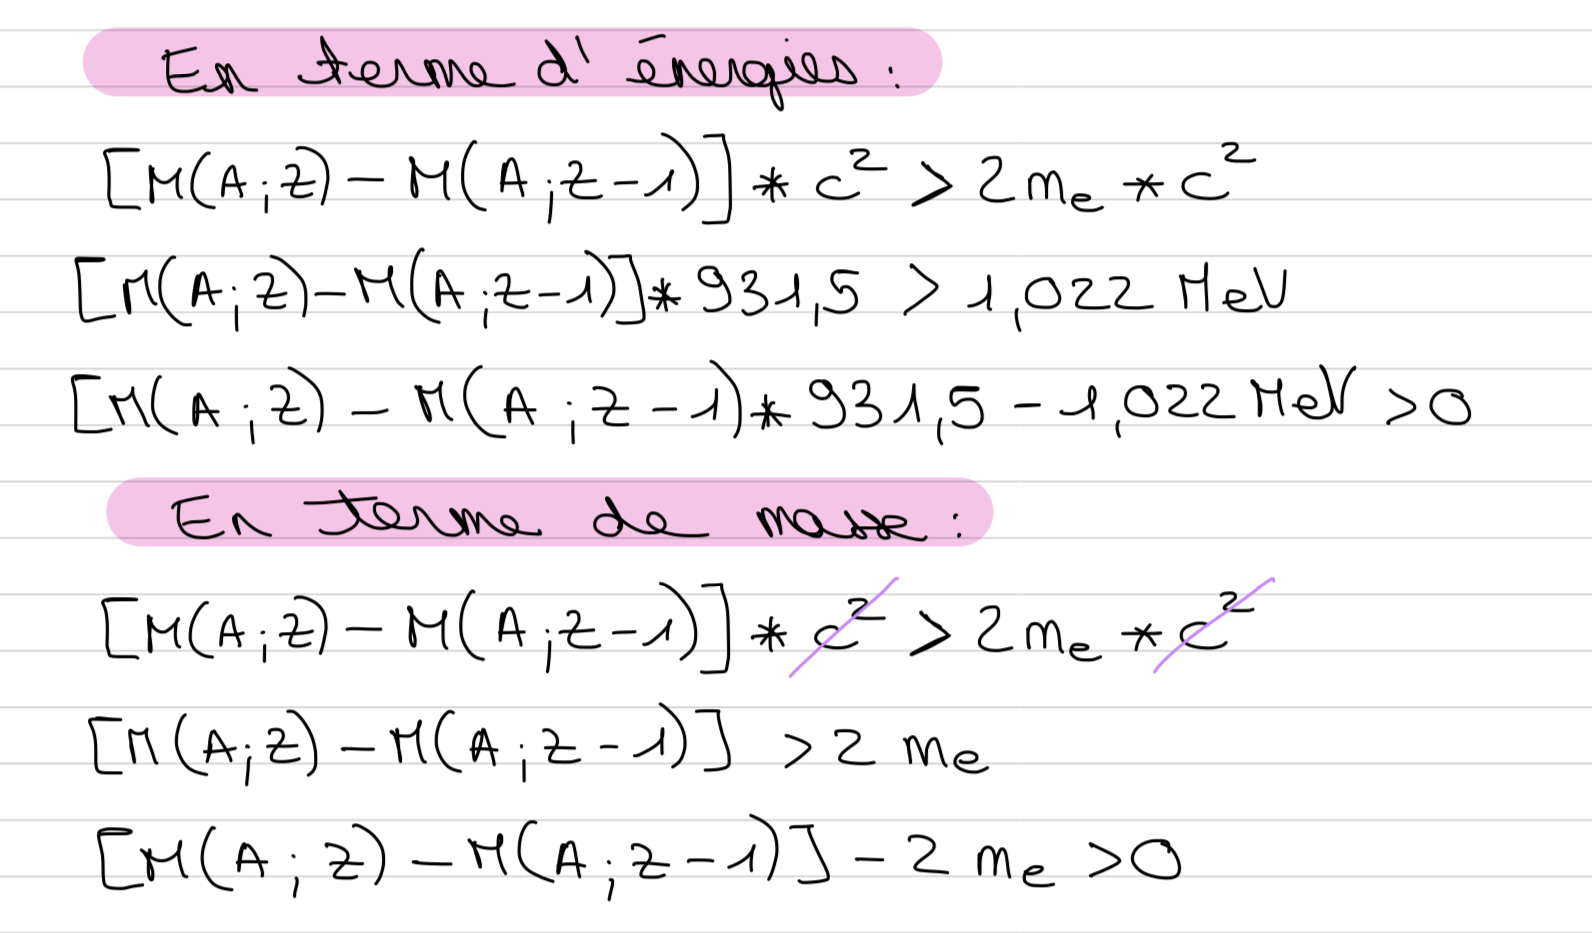 En terme d'énergies :
[M(A;Z) - M(A;Z-1)] * c² > 2me * c²
[M(A;Z)-M(A;Z-1)]* 931,5 > 1,022 MeV
[M(A;Z) - M(A;Z-1)* 931,5 - 1,022 MeV >0
En terme de masse :
[M(A;Z) - M(A;Z-1)] * c² > 2me * c²
[M(A;Z) - M(A;Z-1)] > 2 me
[M(A;Z) - M(A;Z-1)] - 2 me >0